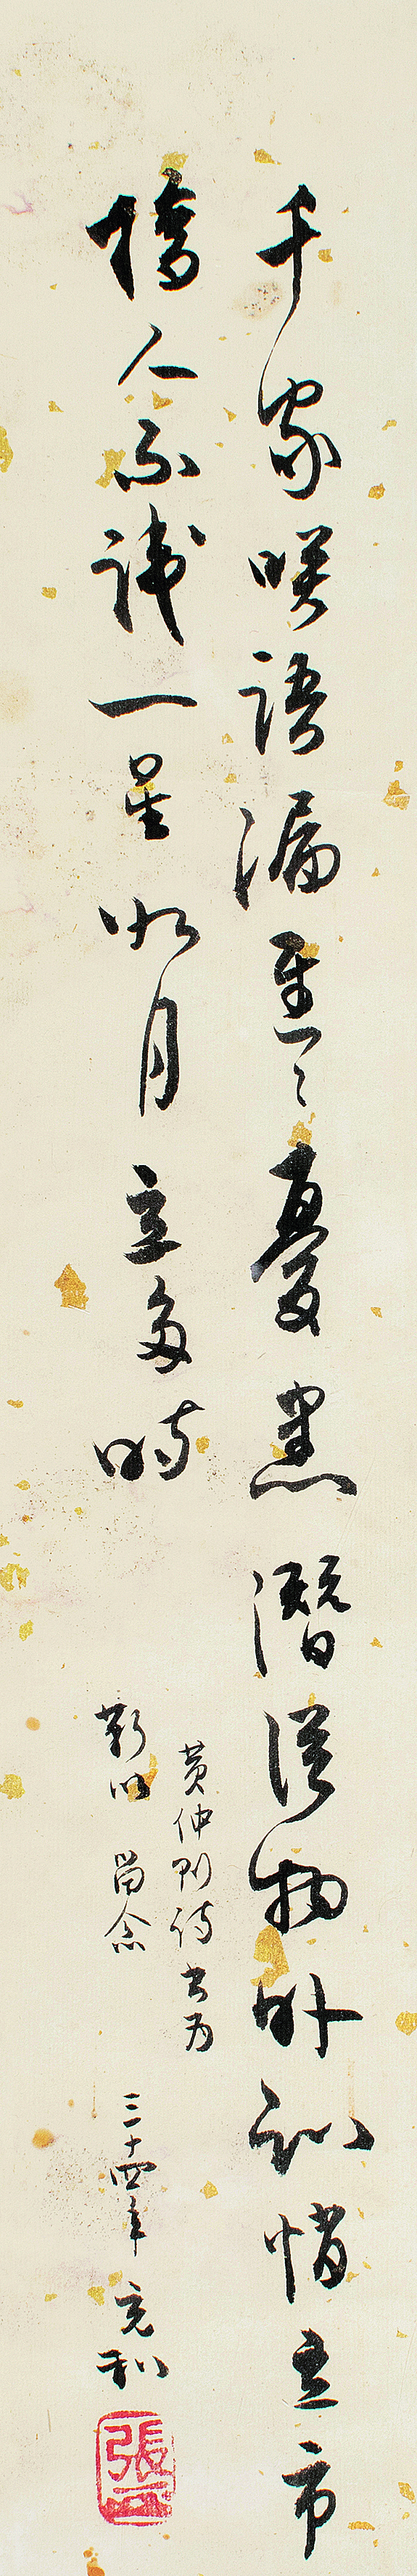 千家咲語漏遲〻憂患潛從物外知悄立市
橋人不識一星如月立多時
黃仲則詩書為
靳以留念
三十四年充和
張四